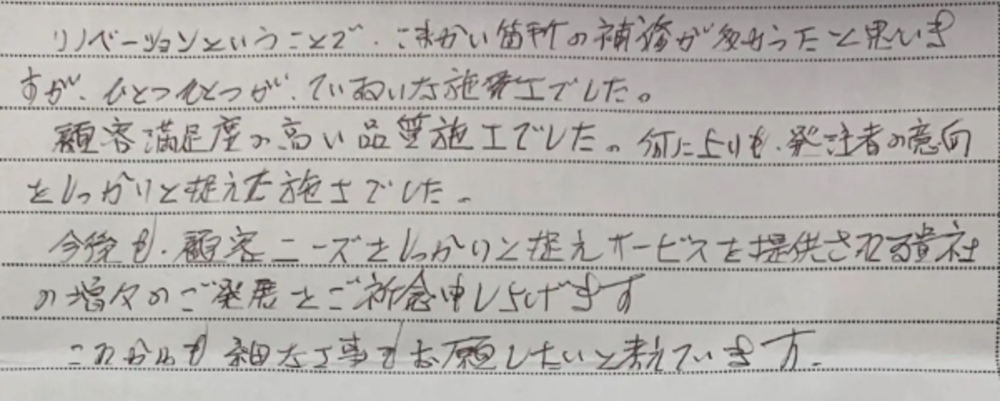 リノベーションということで、こまかい箇所の補修が多かったと思いま
すが、ひとつひとつが、ていねいな施工でした。
顧客満足度の高い品質施工でした。何よりも、発注者の意向
をしっかりと捉えた施工でした。
今後も、顧客ニーズをしっかりと捉えサービスを提供される貴社
の増々のご発展をご祈念申し上げます
これからも 細な工事もお願したいと考えています。